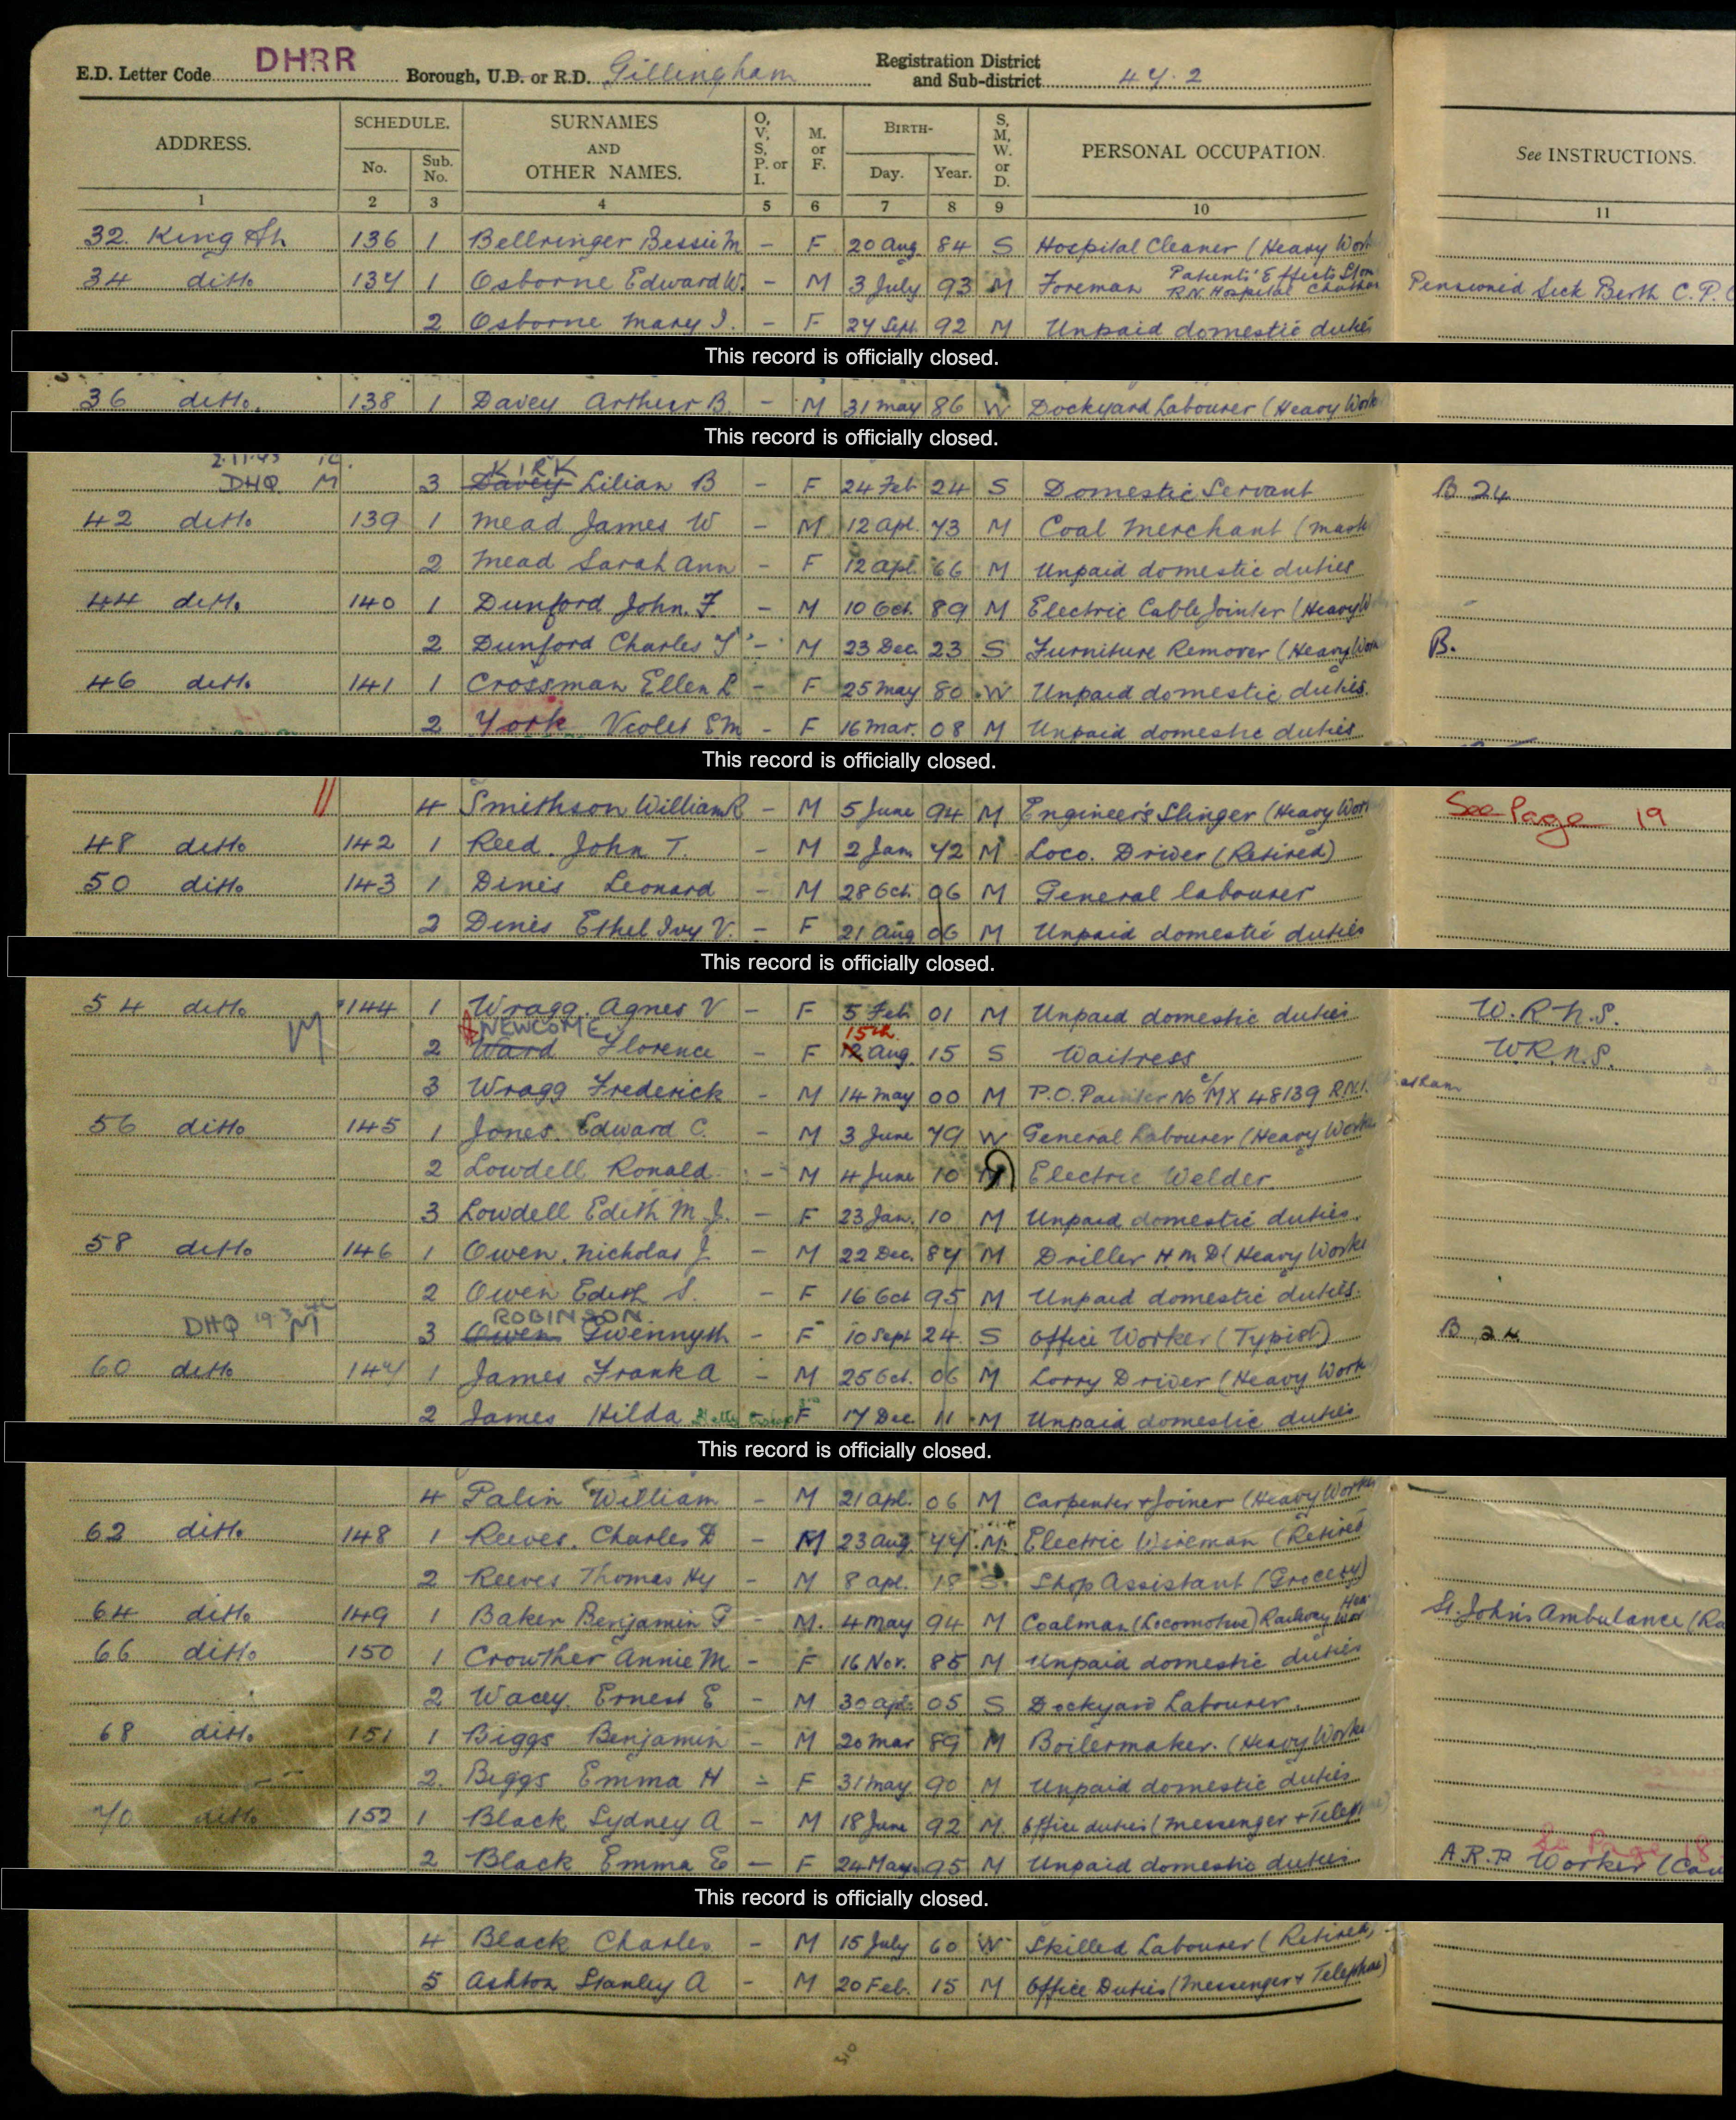 E.D. Letter Code DHRR Borough, U.D. or R.D. Gillingham Registration District and Sub-district 47.2
ADDRESS. SCHEDULE. No. Sub. No. SURNAMES AND OTHER NAMES. O, V, S, P. or I. M. or F. BIRTH- Day. Year. S, M, W. or D. PERSONAL OCCUPATION. See INSTRUCTIONS.
1 2 3 4 5 6 7 8 9 10 11
32 King St 136 1 Bellringer Bessie M - F 20 Aug 84 S Hospital Cleaner (Heavy Work
34 ditto 137 1 Osborne Edward W. - M 3 July 93 M Foreman Patients' Effects Store R.N. Hospital Chatham Pensioned Sick Berth C.P.O
2 Osborne Mary J. - F 27 Sept. 92 M Unpaid domestic duties
This record is officially closed.
36 ditto. 138 1 Davey Arthur B. - M 31 May 86 W Dockyard Labourer (Heavy Work
This record is officially closed.
2.11.43
DHQ M 3 Davey KIRK Lilian B - F 24 Feb 24 S Domestic Servant B 24
42 ditto 139 1 Mead James W - M 12 Apl. 73 M Coal Merchant (Mast
2 Mead Sarah Ann - F 12 Apl. 66 M Unpaid domestic duties
44 ditto 140 1 Dunford John. F. - M 10 Oct. 89 M Electric Cable Jointer (Heavy W
2 Dunford Charles T - M 23 Dec. 23 S Furniture Remover (Heavy Work B.
46 ditto 141 1 Crossman Ellen L - F 25 May 80 W Unpaid domestic duties.
2 York Violet E M - F 16 Mar. 08 M Unpaid domestic duties
This record is officially closed.
4 Smithson William R - M 5 June 94 M Engineer's Slinger (Heavy Work See Page 19
48 ditto 142 1 Reed. John T. - M 2 Jan 72 M Loco. Driver (Retired)
50 ditto 143 1 Dinis Leonard - M 28 Oct. 06 M General labourer
2 Dinis Ethel Ivy V. - F 21 Aug 06 M Unpaid domestic duties
This record is officially closed.
54 ditto 144 1 Wragg Agnes V - F 5 Feb. 01 M Unpaid domestic duties W.R.N.S.
M 2 Ward NEWCOME Florence - F 12 15th Aug. 15 S Waitress W.R.N.S.
3 Wragg Frederick - M 14 May 00 M P.O. Painter No C/MX 48139 R.N. Chatham
56 ditto 145 1 Jones. Edward C. - M 3 June 79 W General Labourer (Heavy Work
2 Lowdell Ronald - M 4 June 10 M Electric Welder.
3 Lowdell Edith M. J. - F 23 Jan. 10 M Unpaid domestic duties.
58 ditto 146 1 Owen. Nicholas J - M 22 Dec. 87 M Driller H.M.D (Heavy Worke
2 Owen Edith S. - F 16 Oct 95 M Unpaid domestic duties.
DHQ M 3 Owen ROBINSON Gwennyth - F 10 Sept 24 S Office Worker (Typist) B 24
60 ditto 147 1 James Frank A - M 25 Oct. 06 M Lorry Driver (Heavy Work
2 James Hilda - F 17 Dec. 11 M Unpaid domestic duties
This record is officially closed.
4 Palin William - M 21 Apl. 06 M Carpenter + Joiner (Heavy Work
62 ditto 148 1 Reeves. Charles D - M 23 Aug. 77 M. Electric Wireman (Retired
2 Reeves Thomas Hy - M 8 Apl. 18 S Shop Assistant (Grocery)
64 ditto 149 1 Baker Benjamin G - M. 4 May 94 M Coalman (Locomotive) Railway Heavy Wor St. John's Ambulance (Ra
66 ditto 150 1 Crowther Annie M - F 16 Nov. 85 M Unpaid domestic duties
2 Wacey. Ernest E - M 30 Apl. 05 S Dockyard Labourer.
68 ditto 151 1 Biggs Benjamin - M 20 Mar 89 M Boilermaker. (Heavy Worke
2. Biggs Emma H - F 31 May 90 M Unpaid domestic duties
70 ditto 152 1 Black Sydney A - M 18 June 92 M. Office duties (Messenger + Teleph
See Page 18
2 Black Emma E - F 24 May 95 M Unpaid domestic duties A.R.P. Worker (Can
This record is officially closed.
4 Black Charles - M 15 July 60 W Skilled Labourer (Retired)
5 Ashton Stanley A - M 20 Feb. 15 M Office Duties (Messenger + Telephone)
310